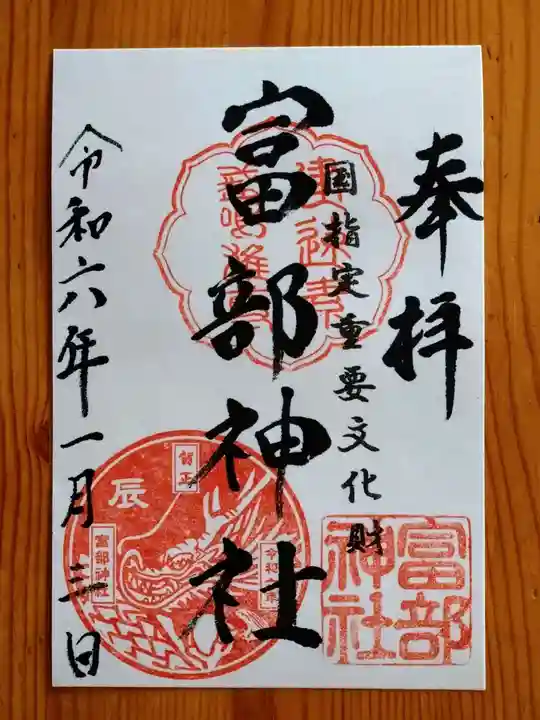 奉拝
国指定重要文化財
富部神社
令和六年一月三日
富部
神社
辰
賀正
富部神社